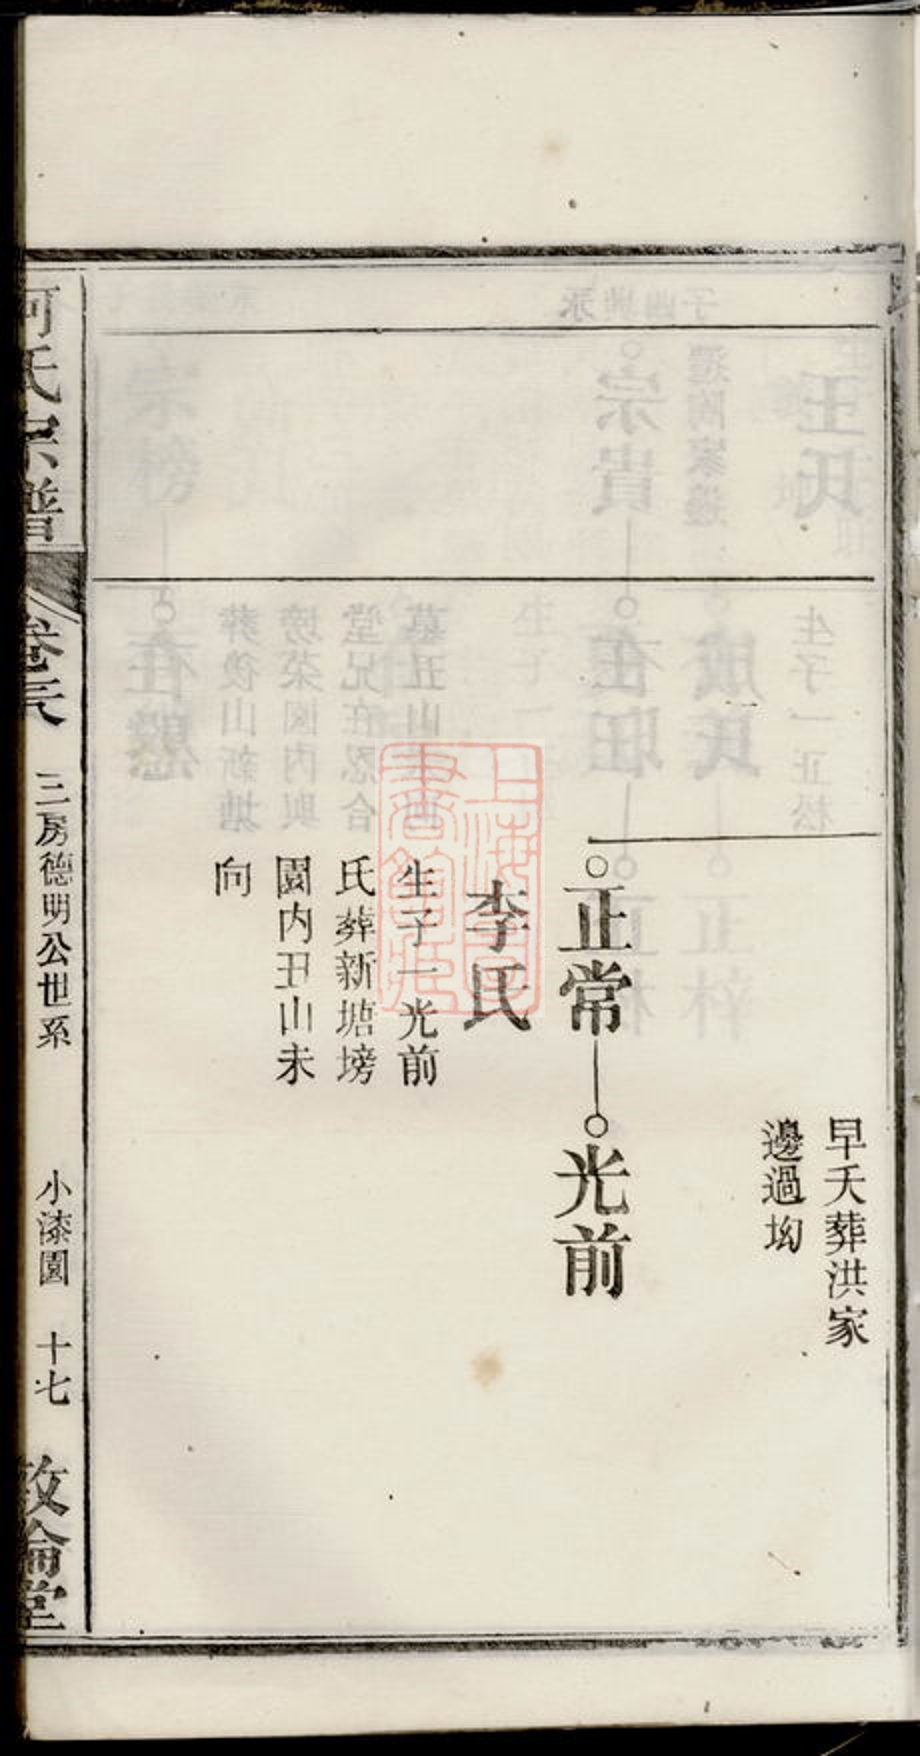 早夭葬洪家
邊過坳
正常
光前
李氏
生子一光前
氏葬新塘塝
園内丑山未
向
何氏宗譜
卷三
三房德明公世系
小漆園
十七
敦倫堂
上海圖書館藏